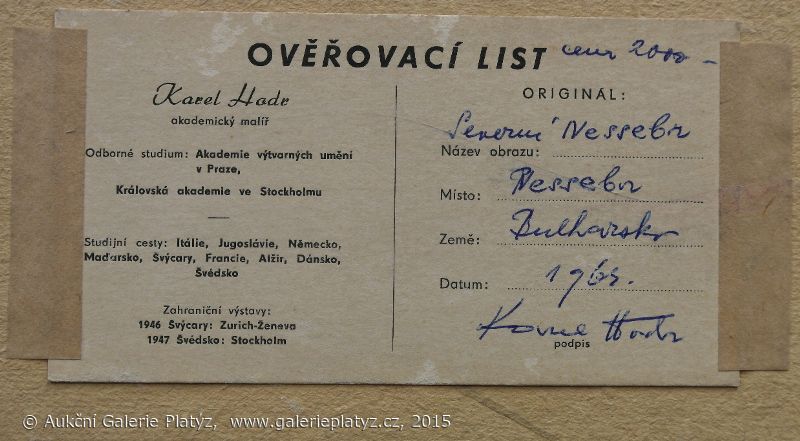 OVĚŘOVACÍ LIST cena 2000 -
Karel Hodr
akademický malíř
Odborné studium: Akademie výtvarných umění
v Praze,
Královská akademie ve Stockholmu
Studijní cesty: Itálie, Jugoslávie, Německo,
Maďarsko, Švýcary, Francie, Alžir, Dánsko,
Švédsko
Zahraniční výstavy:
1946 Švýcary: Zurich-Ženeva
1947 Švédsko: Stockholm
ORIGINÁL:
Severní Nessebr
Název obrazu:
Místo: Nessebr
Země: Bulharsko
Datum: 1965.
Karel Hodr
podpis
© Aukční Galerie Platýz, www.galerieplatyz.cz, 2015